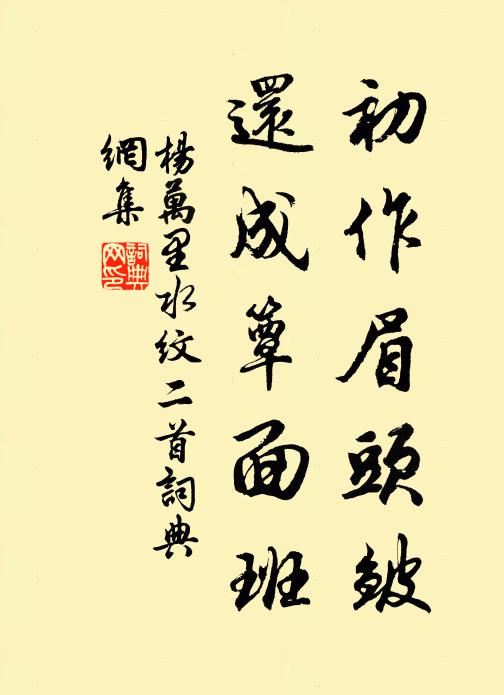 初作眉頭皴
還成簟面班
楊萬里水紋二首詞典
網集
詞典
网印